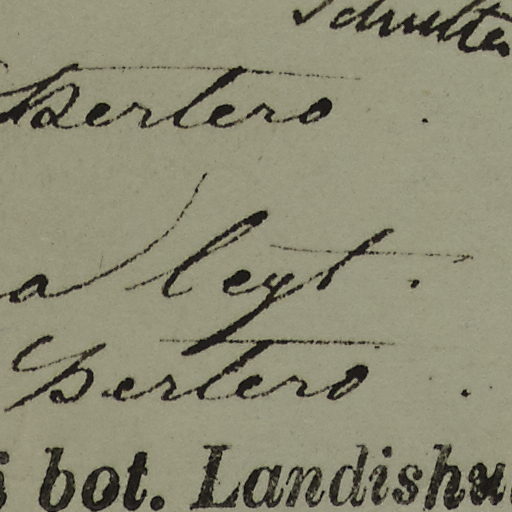 Schultes
Bertero .
a) legt .
Bertero .
bot. Landishu